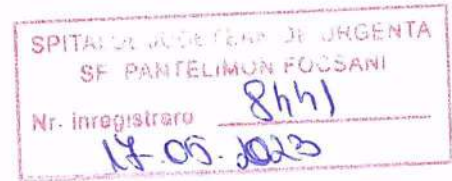 SPITALUL JUDETEAN DE URGENTA
SF PANTELIMON FOCSANI
Nr. inregistrare 8441
17.05.2023